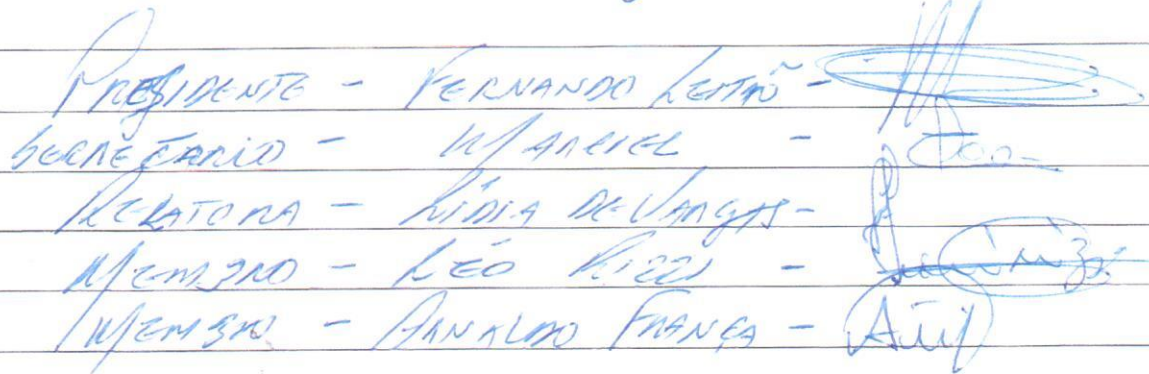 PRESIDENTE - FERNANDO LEITÃO -
SECRETARIO - MARCIEL -
RELATORA - LÍDIA DE VARGAS -
MEMBRO - LÉO RIZZI -
MEMBRO - ARNALDO FRANÇA -